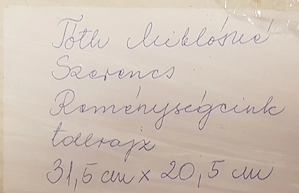 Tóth Miklósné
Szerencs
Reménységeink
tollrajz
31,5 cm x 20,5 cm